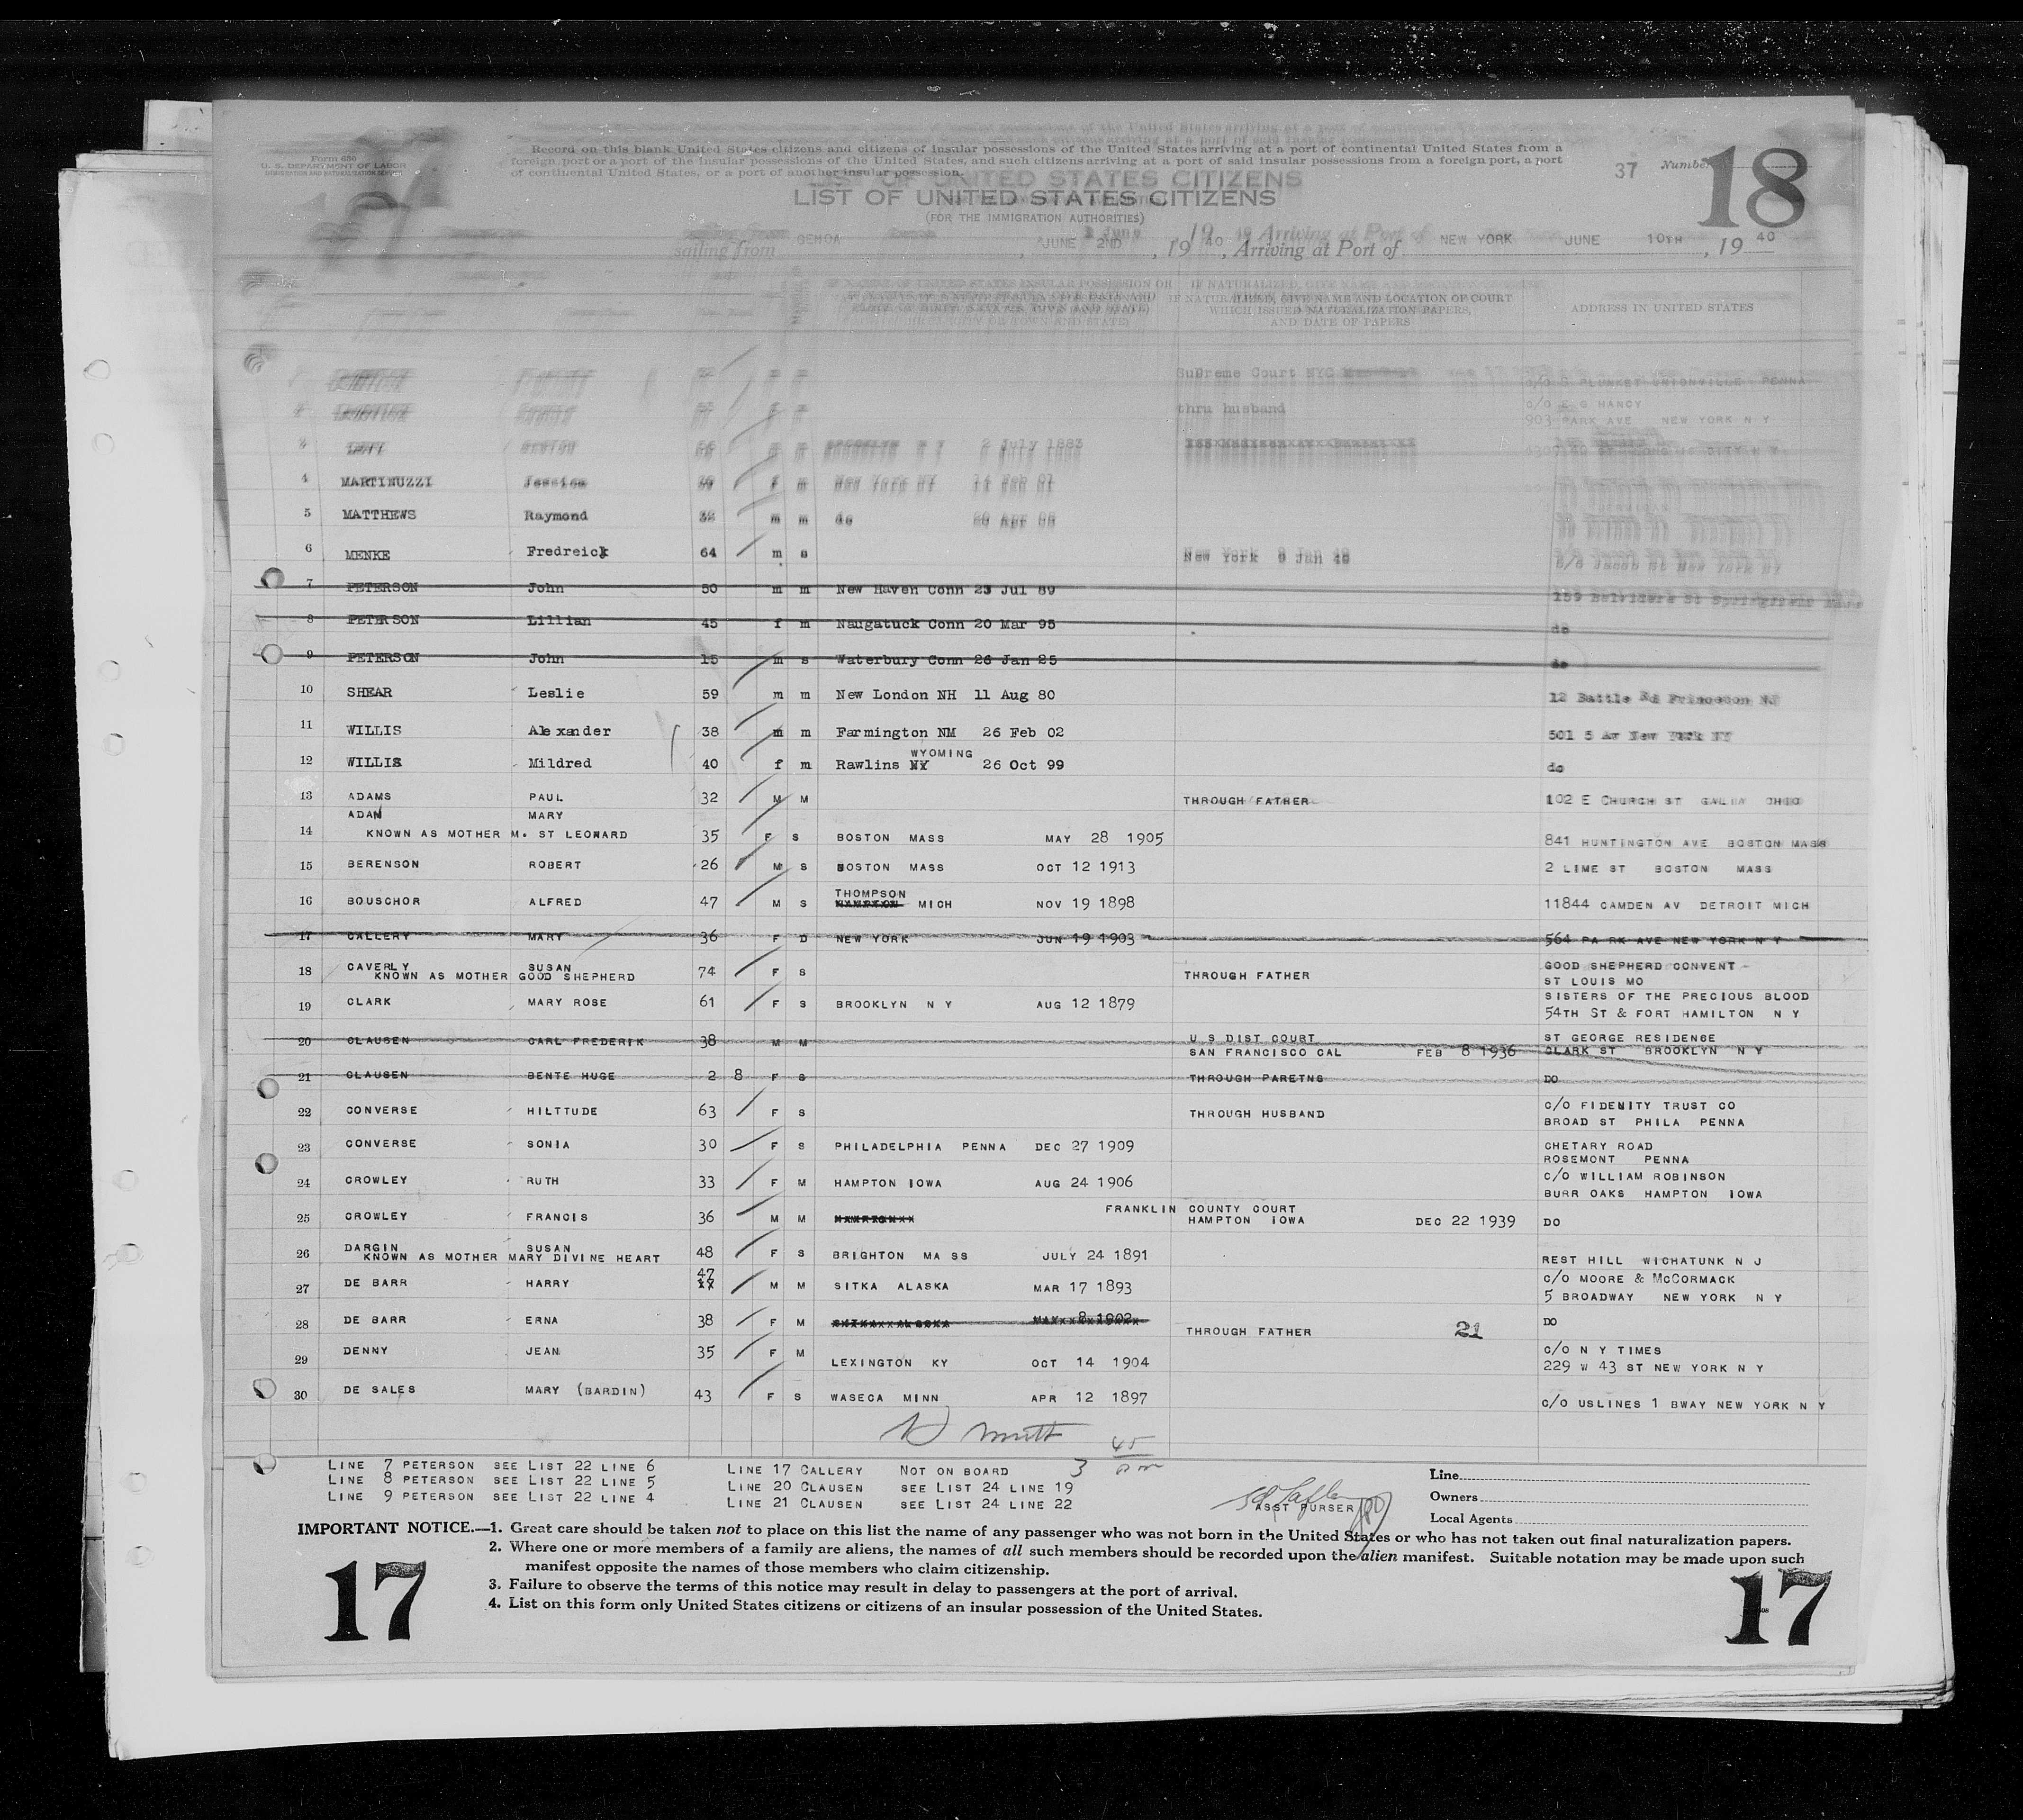 Form 630
U. S. DEPARTMENT OF LABOR
IMMIGRATION AND NATURALIZATION SERVICE
Record on this blank United States citizens and citizens of insular possessions of the United States arriving at a port of continental United States from a
foreign port or a port of the insular possessions of the United States, and such citizens arriving at a port of said insular possessions from a foreign port, a port
of continental United States, or a port of another insular possession.
37 Number 18
LIST OF UNITED STATES CITIZENS
(FOR THE IMMIGRATION AUTHORITIES)
sailing from GENOA, JUNE 2ND, 1940, Arriving at Port of NEW YORK JUNE 10TH, 1940
IF NATURALIZED, GIVE NAME AND LOCATION OF COURT
WHICH ISSUED NATURALIZATION PAPERS,
AND DATE OF PAPERS
ADDRESS IN UNITED STATES
Supreme Court NYC
c/o S PLUNKET UNIONVILLE PENNA
thru husband c/o E G HANCY
903 PARK AVE NEW YORK N Y
LEVY m m 2 July 1883
4 MARTINUZZI Jessica f m New York NY
5 MATTHEWS Raymond 32 m m do
6 MENKE Fredreick 64 m s New York 9 Jan 40
7 PETERSON John 50 m m New Haven Conn 23 Jul 89 159 Belvidere St Springfield
8 PETERSON Lillian 45 f m Naugatuck Conn 20 Mar 95 do
9 PETERSON John 15 m s Waterbury Conn 26 Jan 25 do
10 SHEAR Leslie 59 m m New London NH 11 Aug 80 12 Battle Rd Princeton NJ
11 WILLIS Alexander 38 m m Farmington NM 26 Feb 02 501 5 Av New York NY
WYOMING
12 WILLIS Mildred 40 f m Rawlins NY 26 Oct 99 do
13 ADAMS PAUL 32 M M THROUGH FATHER 102 E CHURCH ST GALION OHIO
ADAM MARY
14 KNOWN AS MOTHER M. ST LEONARD 35 F S BOSTON MASS MAY 28 1905 841 HUNTINGTON AVE BOSTON MASS
15 BERENSON ROBERT 26 M S BOSTON MASS OCT 12 1913 2 LIME ST BOSTON MASS
THOMPSON
16 BOUSCHOR ALFRED 47 M S HAMPTON MICH NOV 19 1898 11844 CAMDEN AV DETROIT MICH
17 CALLERY MARY 36 F D NEW YORK JUN 19 1903 564 PARK AVE NEW YORK N Y
18 CAVERLY SUSAN 74 F S THROUGH FATHER GOOD SHEPHERD CONVENT
KNOWN AS MOTHER GOOD SHEPHERD ST LOUIS MO
19 CLARK MARY ROSE 61 F S BROOKLYN N Y AUG 12 1879 SISTERS OF THE PRECIOUS BLOOD
54TH ST & FORT HAMILTON N Y
20 CLAUSEN CARL FREDERIK 38 M M U S DIST COURT ST GEORGE RESIDENSE
SAN FRANCISCO CAL FEB 8 1936 CLARK ST BROOKLYN N Y
21 CLAUSEN BENTE HUGE 2 8 F S THROUGH PARETNS DO
22 CONVERSE HILTTUDE 63 F S THROUGH HUSBAND C/O FIDENITY TRUST CO
BROAD ST PHILA PENNA
23 CONVERSE SONIA 30 F S PHILADELPHIA PENNA DEC 27 1909 CHETARY ROAD
ROSEMONT PENNA
24 CROWLEY RUTH 33 F M HAMPTON IOWA AUG 24 1906 C/O WILLIAM ROBINSON
BURR OAKS HAMPTON IOWA
FRANKLIN COUNTY COURT
25 CROWLEY FRANCIS 36 M M HAMPTON IOWA DEC 22 1939 DO
26 DARGIN SUSAN 48 F S BRIGHTON MA SS JULY 24 1891 REST HILL WICHATUNK N J
KNOWN AS MOTHER MARY DIVINE HEART
27 DE BARR HARRY 47 M M SITKA ALASKA MAR 17 1893 C/O MOORE & McCORMACK
5 BROADWAY NEW YORK N Y
28 DE BARR ERNA 38 F M THROUGH FATHER 21 DO
29 DENNY JEAN 35 F M LEXINGTON KY OCT 14 1904 C/O N Y TIMES
229 W 43 ST NEW YORK N Y
30 DE SALES MARY (BARDIN) 43 F S WASECA MINN APR 12 1897 C/O USLINES 1 BWAY NEW YORK N Y
45
3
LINE 7 PETERSON SEE LIST 22 LINE 6
LINE 8 PETERSON SEE LIST 22 LINE 5
LINE 9 PETERSON SEE LIST 22 LINE 4
LINE 17 CALLERY NOT ON BOARD
LINE 20 CLAUSEN SEE LIST 24 LINE 19
LINE 21 CLAUSEN SEE LIST 24 LINE 22
ASST PURSER
Line
Owners
Local Agents
IMPORTANT NOTICE.—1. Great care should be taken not to place on this list the name of any passenger who was not born in the United States or who has not taken out final naturalization papers.
2. Where one or more members of a family are aliens, the names of all such members should be recorded upon the alien manifest. Suitable notation may be made upon such
manifest opposite the names of those members who claim citizenship.
3. Failure to observe the terms of this notice may result in delay to passengers at the port of arrival.
4. List on this form only United States citizens or citizens of an insular possession of the United States.
17
17